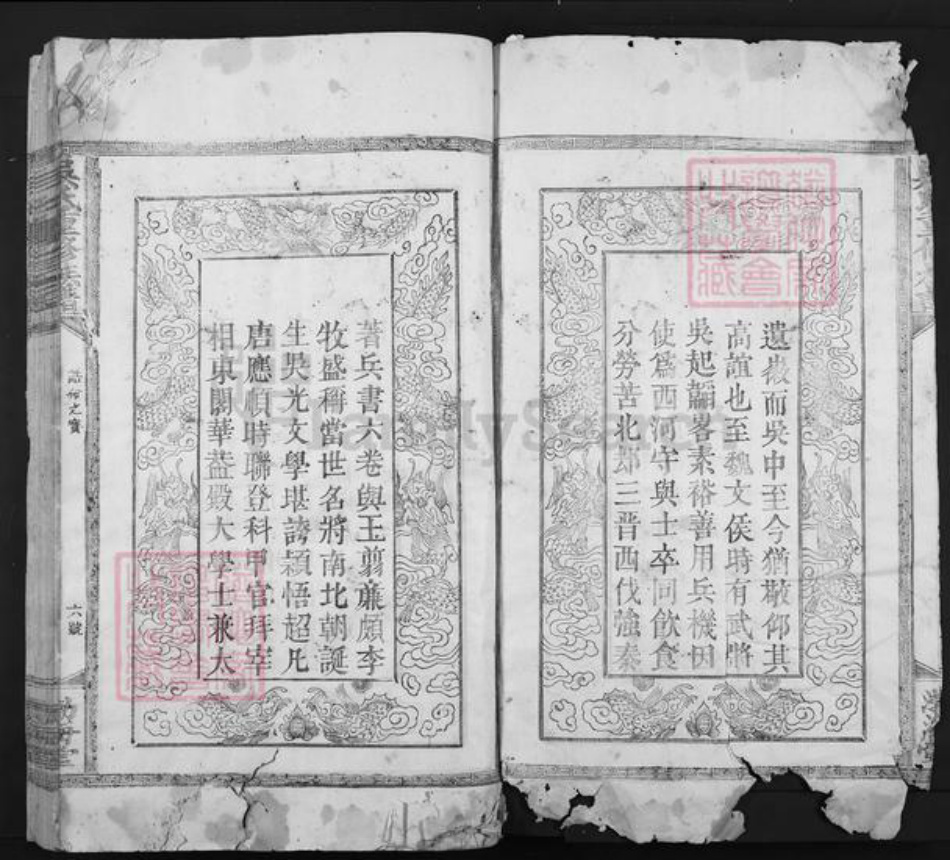 遺徽而吳中至今猶敬仰其
高誼也至魏文侯時有武將
吳起韜畧素裕善用兵機因
使爲西河守與士卒同飲食
分勞苦北却三晋西伐強秦
著兵書六卷與王翦亷頗李
牧盛稱當世名將南北朝誕
生吳光文學堪誇穎悟超凡
唐應順時聯登科甲官拜宰
相東閣華葢殿大學士兼太
誥命之寶
六號
FamilySearch